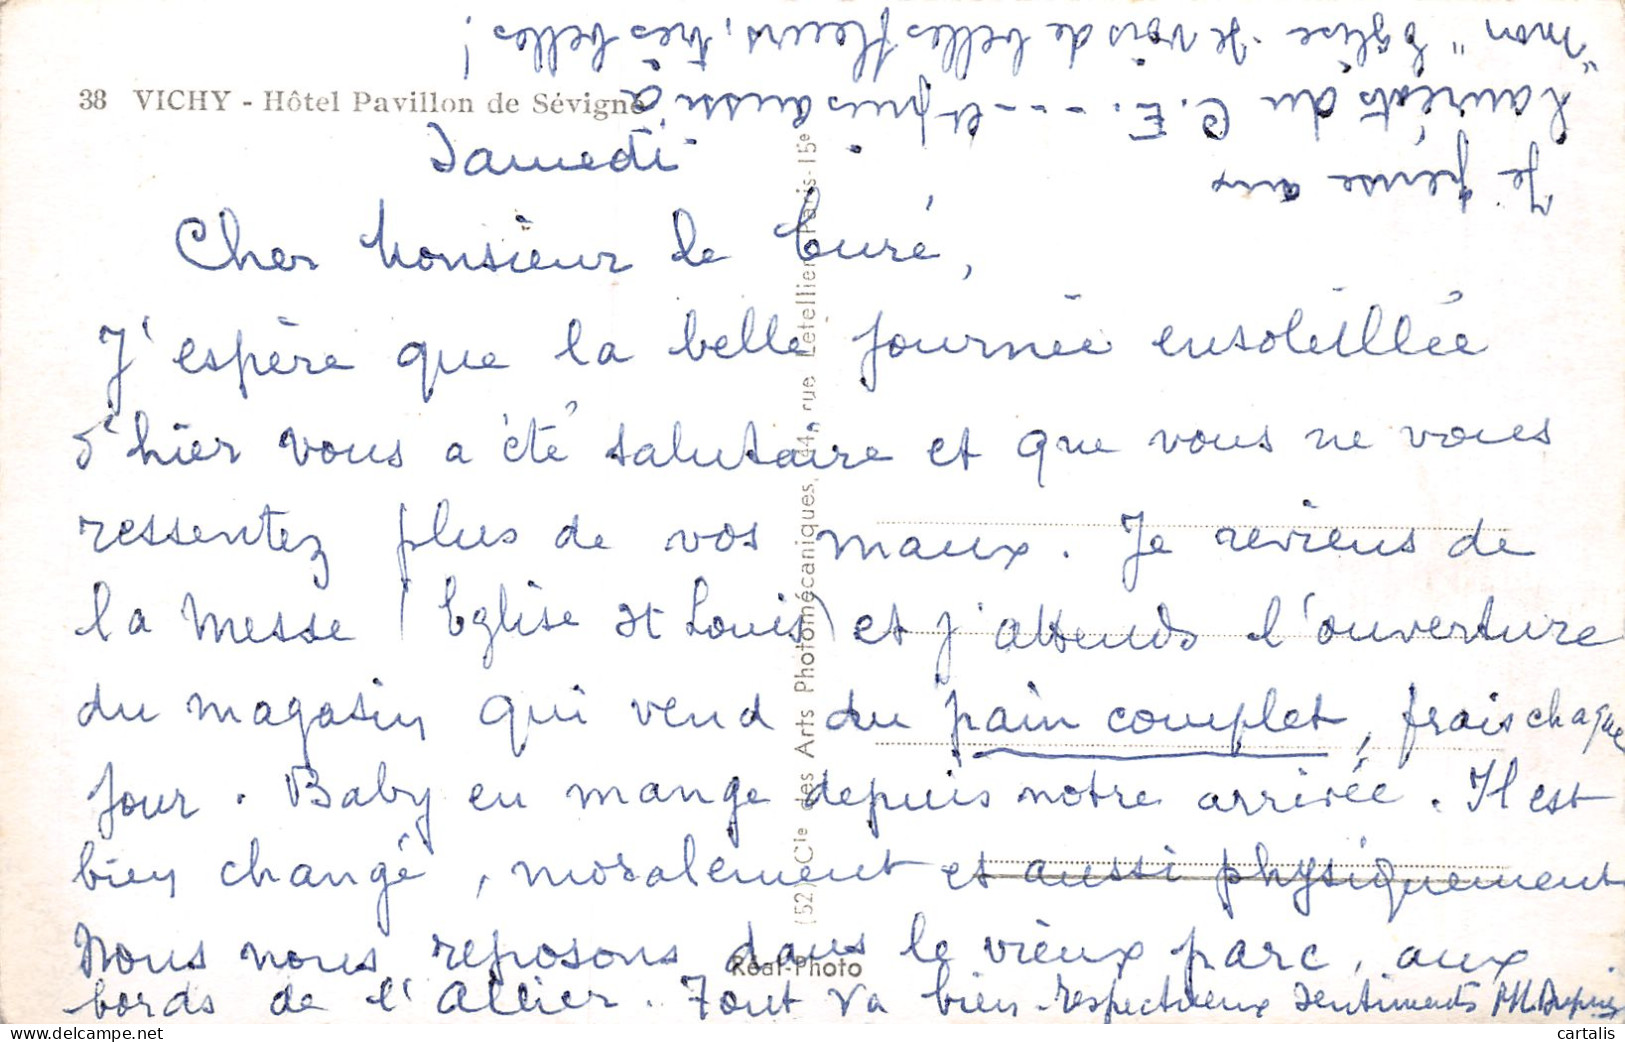 38 VICHY - Hôtel Pavillon de Sévigné
Samedi
Cher Monsieur le Curé,
J'espère que la belle journée ensoleillée
d'hier vous a été salutaire et que vous ne vous
ressentez plus de vos maux. Je reviens de
la Messe (Eglise St Louis) et j'attends l'ouverture
du magasin qui vend du pain complet, frais chaque
jour. Baby en mange depuis notre arrivée. Il est
bien changé, moralement et aussi physiquement
Nous nous reposons dans le vieux parc, aux
bords de l'Allier. Tout va bien - respectueux sentiments
Je pense aux
lauréats du C.E. - - - et puis aussi à
"mon" Eglise. Je vois de belles fleurs, très belles !
(52) Cie des Arts Photomécaniques, 44, rue Letellier, Paris-15e
Réal-Photo
cartalis